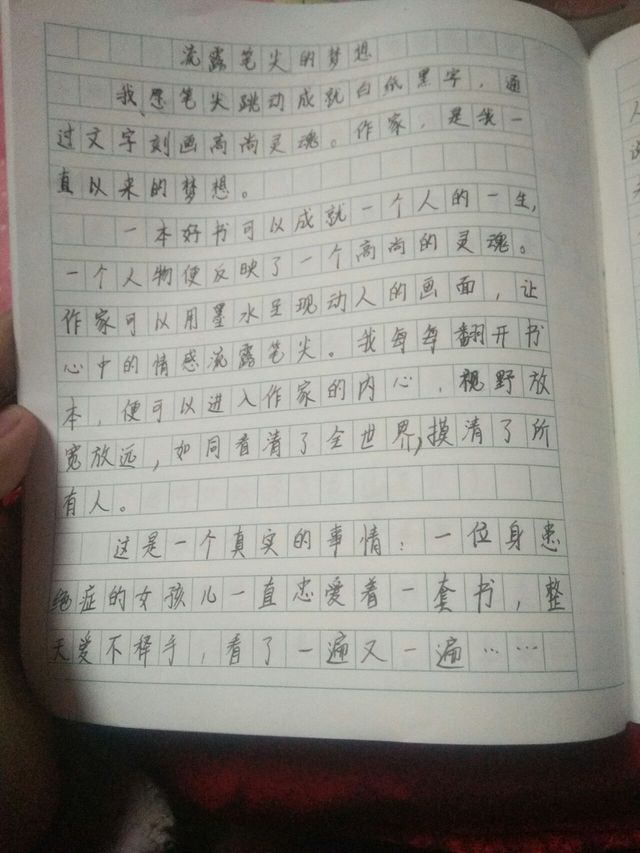 流露笔尖的梦想
我愿笔尖跳动成就白纸黑字，通
过文字刻画高尚灵魂。作家，是我一
直以来的梦想。
一本好书可以成就一个人的一生，
一个人物便反映了一个高尚的灵魂。
作家可以用墨水呈现动人的画面，让
心中的情感流露笔尖。我每每翻开书
本，便可以进入作家的内心，视野放
宽放远，如同看清了全世界，摸清了所
有人。
这是一个真实的事情：一位身患
绝症的女孩儿一直忠爱着一套书，整
天爱不释手，看了一遍又一遍……